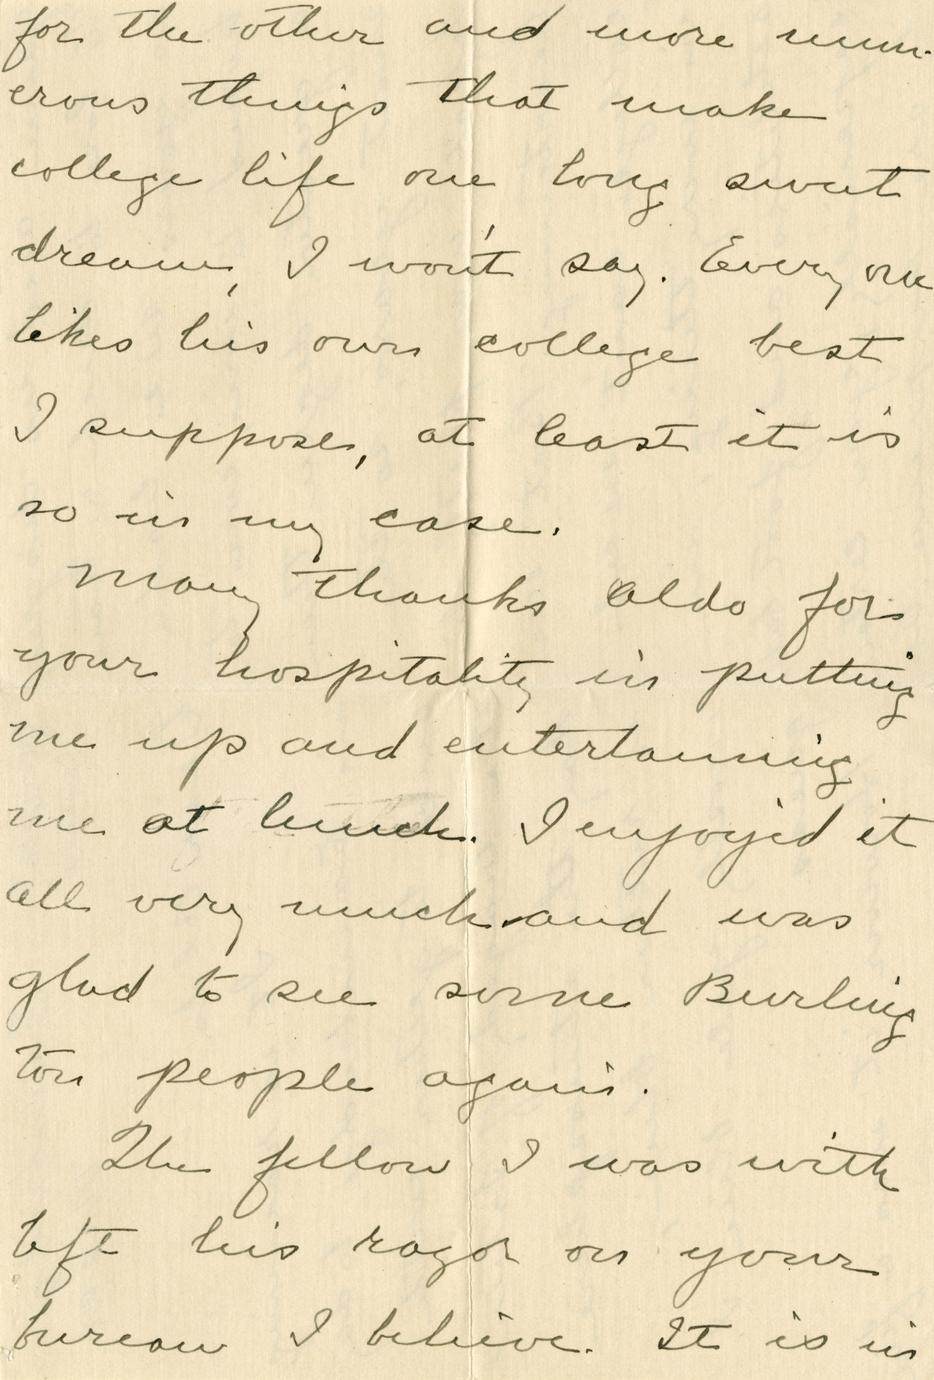 for the other and more num-
erous things that make
college life one long sweet
dream, I won't say. Every one
likes his own college best
I suppose, at least it is
so in my case.
Many thanks Aldo for
your hospitality in putting
me up and entertaining
me at lunch. I enjoyed it
all very much and was
glad to see some Burling
ton people again.
The fellow I was with
left his razor on your
bureau I believe. It is in